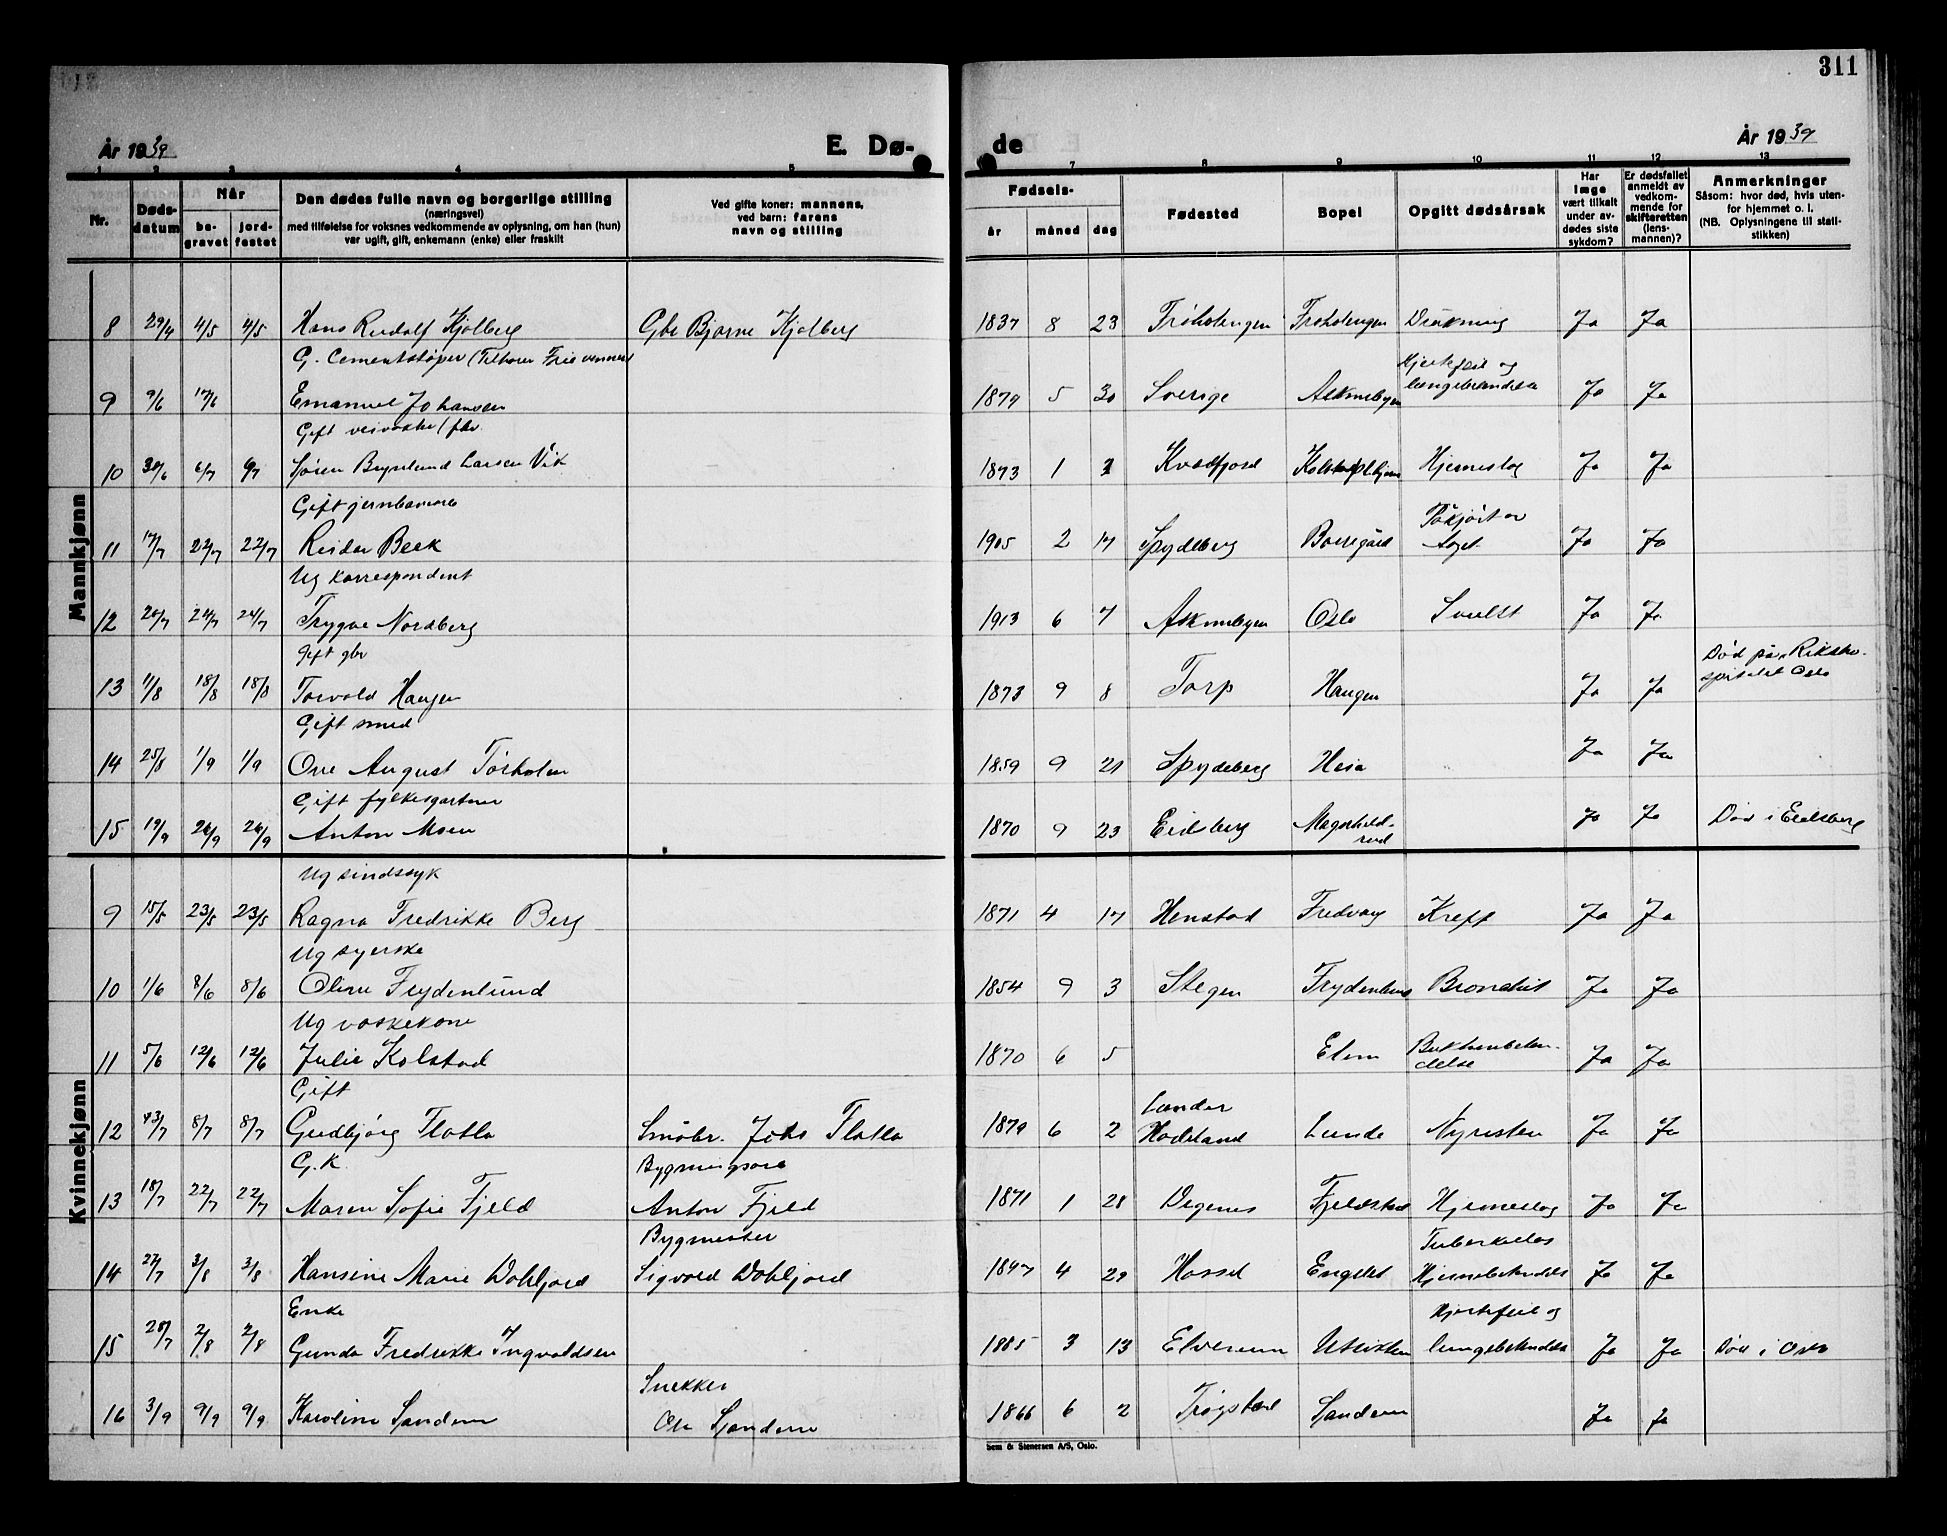 311
År 1939
E. Dø-
de
År 1939
1 2 3 4 5 7 8 9 10 11 12 13
Nr.
Døds-
datum
Når
be-
gravet
jord-
festet
Den dødes fulle navn og borgerlige stilling
(næringsvei)
med tilføielse for voksnes vedkommende av oplysning, om han (hun)
var ugift, gift, enkemann (enke) eller fraskilt
Ved gifte koner: mannens,
ved barn: farens
navn og stilling
Fødsels-
år måned dag
Fødested
Bopel
Opgitt dødsårsak
Har
læge
vært tilkalt
under av-
dødes siste
sykdom?
Er dødsfallet
anmeldt av
vedkom-
mende for
skifteretten
(lens-
mannen)?
Anmerkninger
Såsom: hvor død, hvis uten-
for hjemmet o. l.
(NB. Oplysningene til stati-
stikken)
Mannkjønn
8 29/4 4/5 4/5 Hans Rudolf Kjølberg Gbr Bjarne Kjølberg 1837 8 23 Frøholtengen Drukning Ja Ja
G. Cementstøper (Tilhører Frie venner)
9 9/6 17/6 Emanuel Johansen 1879 5 30 Sverige Askimbyen Hjertefeil og
lungebetendelse Ja Ja
Gift veivokter / fhv.
10 30/6 6/7 6/7 Søren Brynlund Larsen Vik 1873 1 Kvedfjord Hjerneslag Ja Ja
Gift jernbanearb
11 17/7 22/7 22/7 Reidar Beck 1905 2 17 Spydeberg Påkjørt av
toget Ja Ja
Ug korrespondent
12 20/7 24/7 24/7 Trygve Nordberg 1913 6 7 Askimbyen Oslo Svulst Ja Ja
Gift gbr
13 11/8 18/8 18/8 Torvald Haugen 1873 9 8 Torp Haugen Ja Ja Død på Riksho-
spitalet Oslo
Gift smed
14 25/8 1/9 1/9 Ove August Torholm 1859 9 21 Spydeberg Ja Ja
Gift fylkesgartner
15 19/9 26/9 26/9 Anton Moen 1870 9 23 Eidsberg Ja Ja Død i Eidsberg
Kvinnekjønn
Ug sindssyk
9 15/5 23/5 23/5 Ragna Fredrikke Berg 1871 4 17 Henstad Fredvang Kreft Ja Ja
Ug syerske
10 1/6 8/6 8/6 Oline Frydenlund 1854 9 3 Stegen Frydenlund Bronchit Ja Ja
Ug vaskekone
11 5/6 12/6 12/6 Julie Kolstad 1870 6 5 Bukhinnebeten-
delse Ja Ja
Gift
12 8/7 8/7 Gudbjørg Flatla Smabr. Johs Flatla 1879 6 2 Hadeland Lunde Nyresten Ja Ja
G.k. Bygningsarb
13 18/7 22/7 22/7 Maren Sofie Fjeld Anton Fjeld 1871 1 28 Degernes Fjeldstad Hjerneslag Ja Ja
Bygmester Tuberkuløs
14 27/7 3/8 3/8 Hansine Marie Dahljord Sigvard Dahljord 4 29 Hassel Engslet Hjernebetendelse Ja Ja
Enke Hjertefeil og
15 28/7 2/8 2/8 Gunda Fredrikke Ingvaldsen 1865 3 13 Elverum Utsikten lungebetendelse Ja Ja Død i Oslo
Snekker
16 3/9 9/9 9/9 Karoline Sandem Ole Sandem 1866 6 2 Trøgstad Sandem Ja Ja
Sem & Stenersen A/S, Oslo.